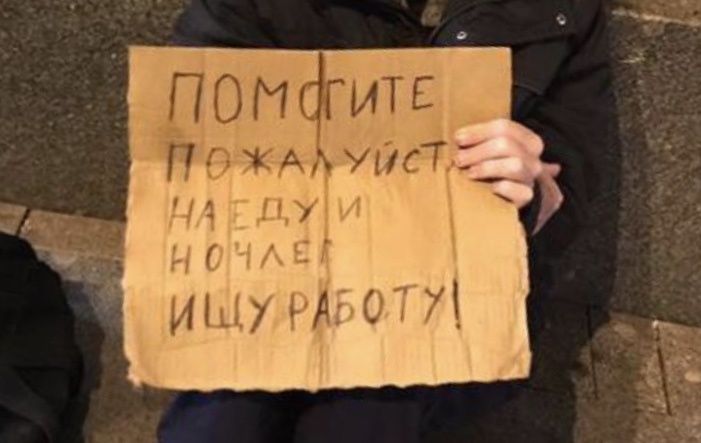 ПОМОГИТЕ
ПОЖАЛУЙСТ
НА ЕДУ И
НОЧЛЕГ
ИЩУ РАБОТУ!